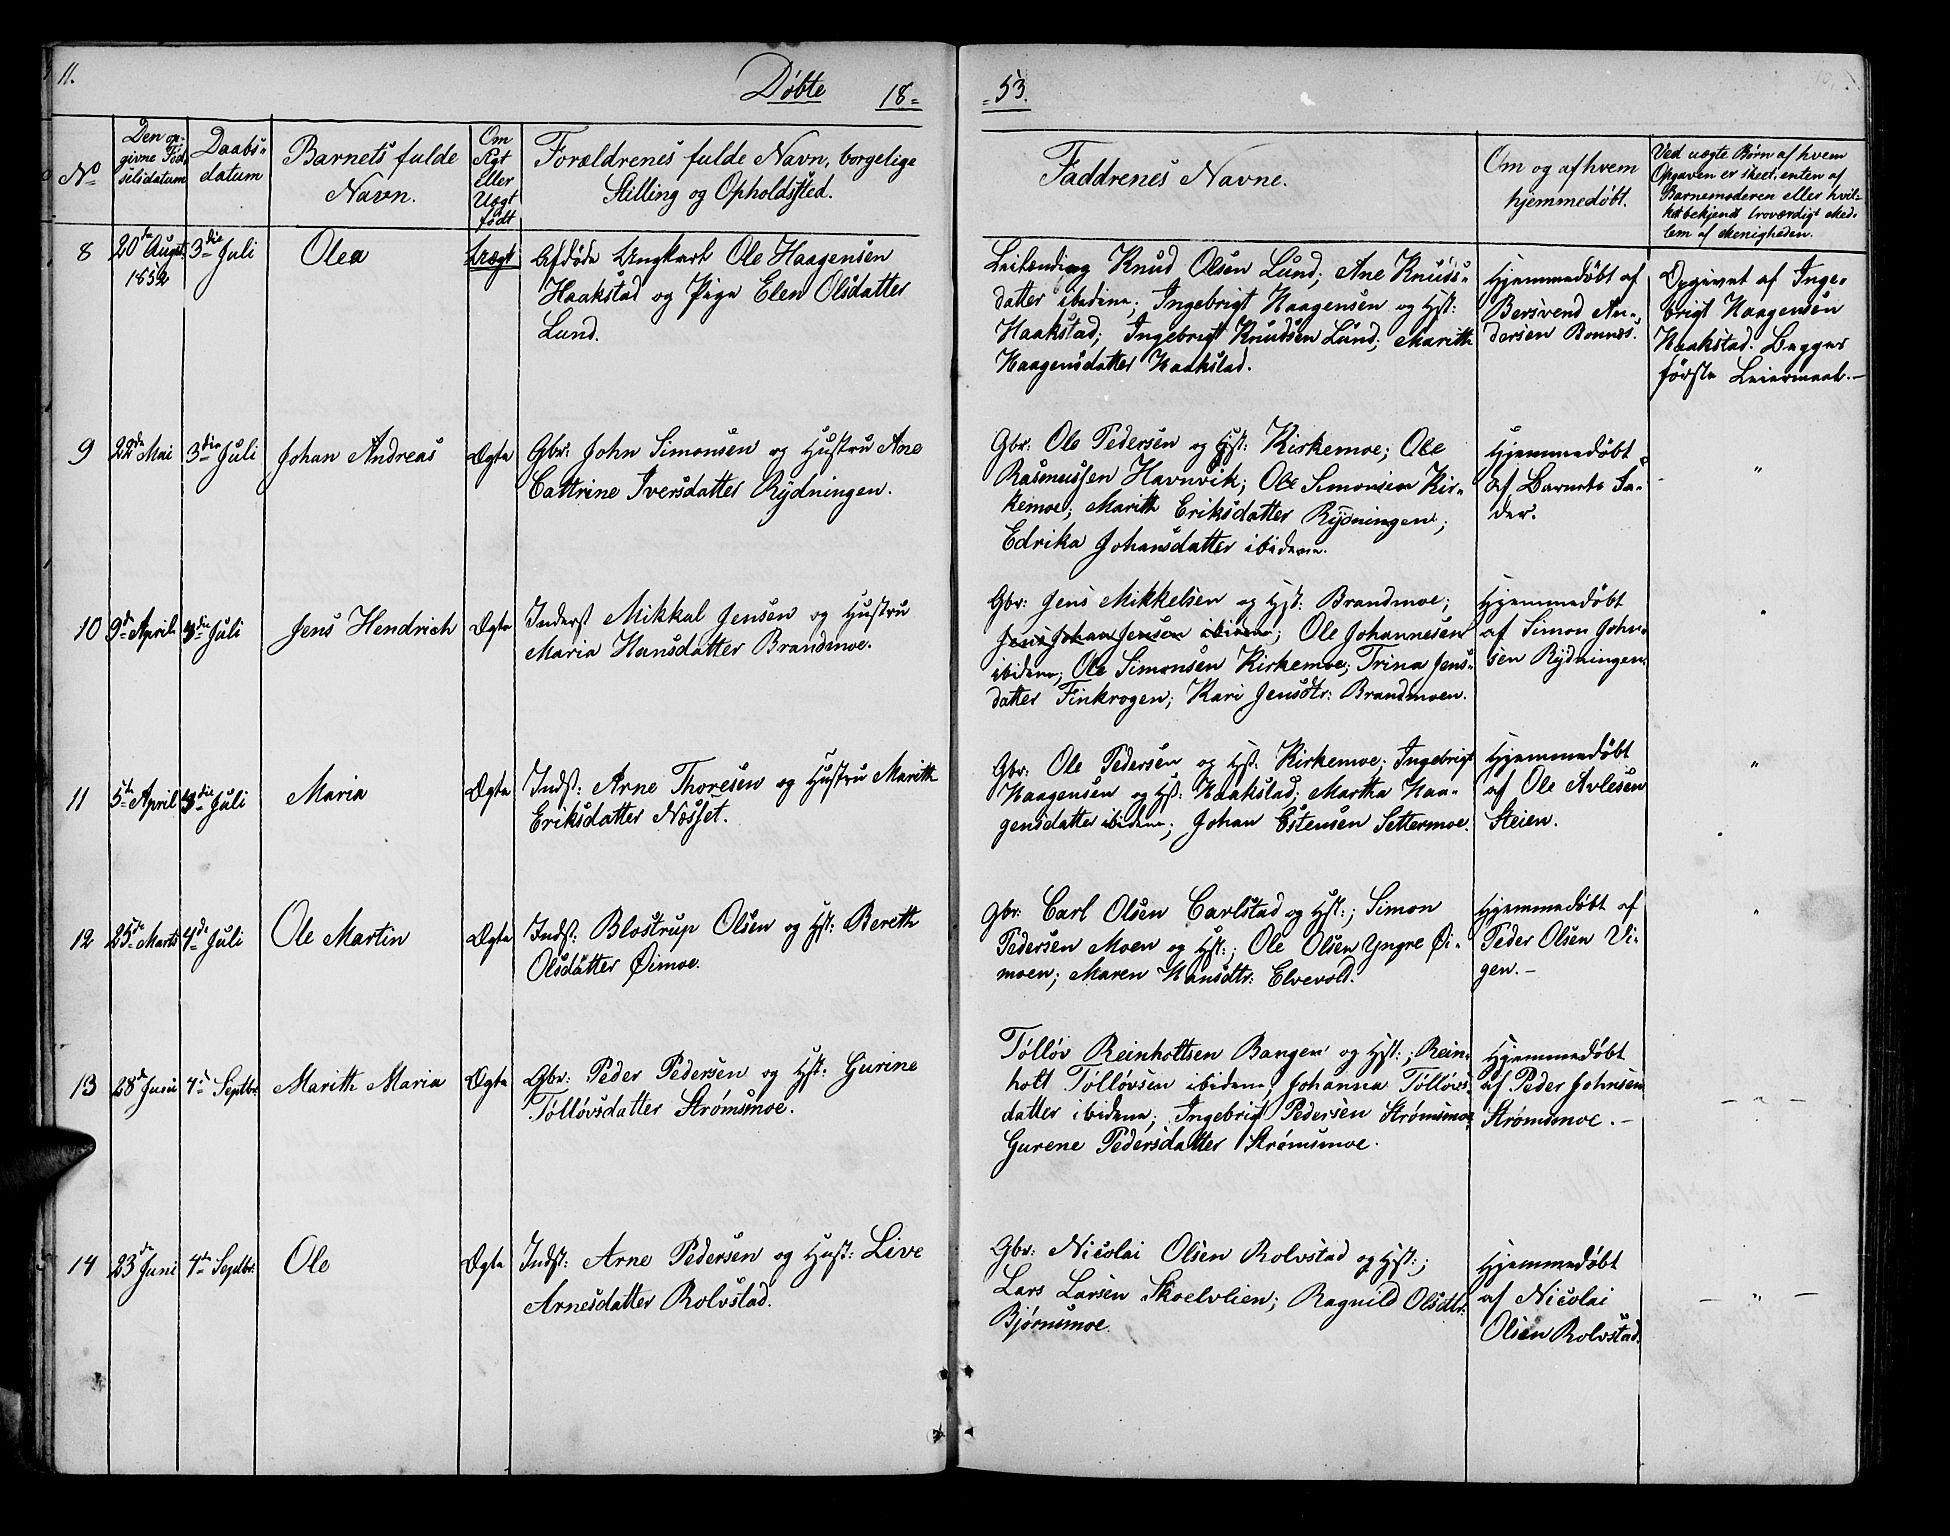 11.
Døbte 18=
=53.
No
Den op-
givne Fød-
selsdatum
Daabs-
datum
Barnets fulde
Navn.
Om
Ægt
eller
Uægt
født
Forældrenes fulde Navn, borgelige
Stilling og Opholdssted.
Faddrenes Navne.
Om og af hvem
hjemmedøbt.
Ved uægte Børn af hvem
Opgaven er skeet, enten af
Barnemoderen eller hvil-
ket bekjendt troværdigt Med-
lem af Menigheden.
8
20de Augst
1852
3die Juli
Olea
Uægt
Afdøde Ungkarl Ole Haagensen
Haakstad og Pige Elen Olsdatter
Lund.
Leilending Knud Olsen Lund; Ane Knuds-
datter ibidem; Ingebrigt Haagensen og Hst:
Haakstad; Ingebrigt Knudsen Lund; Marith
Haagensdatter Haakstad.
Hjemmedøbt af
Bersvend An-
dersen Bonnes.
Opgivet af Inge-
brigt Haagensen
Haakstad. Begges
første Leiermaal.-
9
22de Mai
3die Juli
Johan Andreas
Ægte
Gbr: John Simonsen og Hustru Ane
Cattrine Iversdatter Rydningen.
Gbr: Ole Pedersen og Hst: Kirkemoe; Ole
Rasmussen Havnvik; Ole Simonsen Kir-
kemoe; Marith Eriksdatter Rydningen;
Edrika Johansdatter ibidem.
Hjemmedøbt
af Barnets Fa-
der.
"
10
9de April
3die Juli
Jens Hendrich
Ægte
Inderst Mikkal Jensen og Hustru
Maria Hansdatter Brandmoe.
Gbr: Jens Mikkelsen og Hst: Brandmoe;
Jens Johan Jensen ibidem; Ole Johannesen
ibidem; Ole Simonsen Kirkemoe; Trina Jens-
datter Finkrogen; Kari Jensdtr: Brandmoen.
Hjemmedøbt
af Simon John-
sen Rydningen.
"
11
5te April
3die Juli
Maria
Ægte
Indst: Arne Thoresen og Hustru Marith
Eriksdatter Nøsset.
Gbr: Ole Pedersen og Hst: Kirkemoe; Ingebrigt
Haagensen og Hst: Haakstad; Martha Haa-
gensdatter ibidem; Johan Estensen Settermoe.
Hjemmedøbt
af Ole Avlesen
Steien.
"
12
25de Marts
4de Juli
Ole Martin
Ægte
Indst: Blostrup Olsen og Hst: Bereth
Olsdatter Øimoe.
Gbr: Carl Olsen Carlstad og Hst:; Simon
Pedersen Moen og Hst:; Ole Olsen Yngre Øi-
moen; Maren Hansdtr: Elvevold.
Hjemmedøbt af
Peder Olsen Vi-
gen.-
"
13
28de Juni
4de Septbr.
Marith Maria
Ægte
Gbr: Peder Pedersen og Hst: Gurine
Tølløvsdatter Strømsmoe.
Tølløv Reinholtsen Bangen og Hst:; Rein-
holt Tølløvsen ibidem; Johanna Tølløvs-
datter ibidem; Ingebrigt Pedersen Strømsmoe
Gurene Pedersdatter Strømsmoe.
Hjemmedøbt
af Peder Johnsen
Strømsmoe.-
- " -
14
23de Juni
4de Septbr.
Ole
Ægte
Indst: Arne Pedersen og Hust: Live
Arnesdatter Rolvstad.
Gbr: Nicolai Olsen Rolvstad og Hst:;
Lars Larsen Skoelvlien; Ragnild Olsdtr:
Bjørnsmoe.
Hjemmedøbt
af Nicolai
Olsen Rolvstad.
- " -